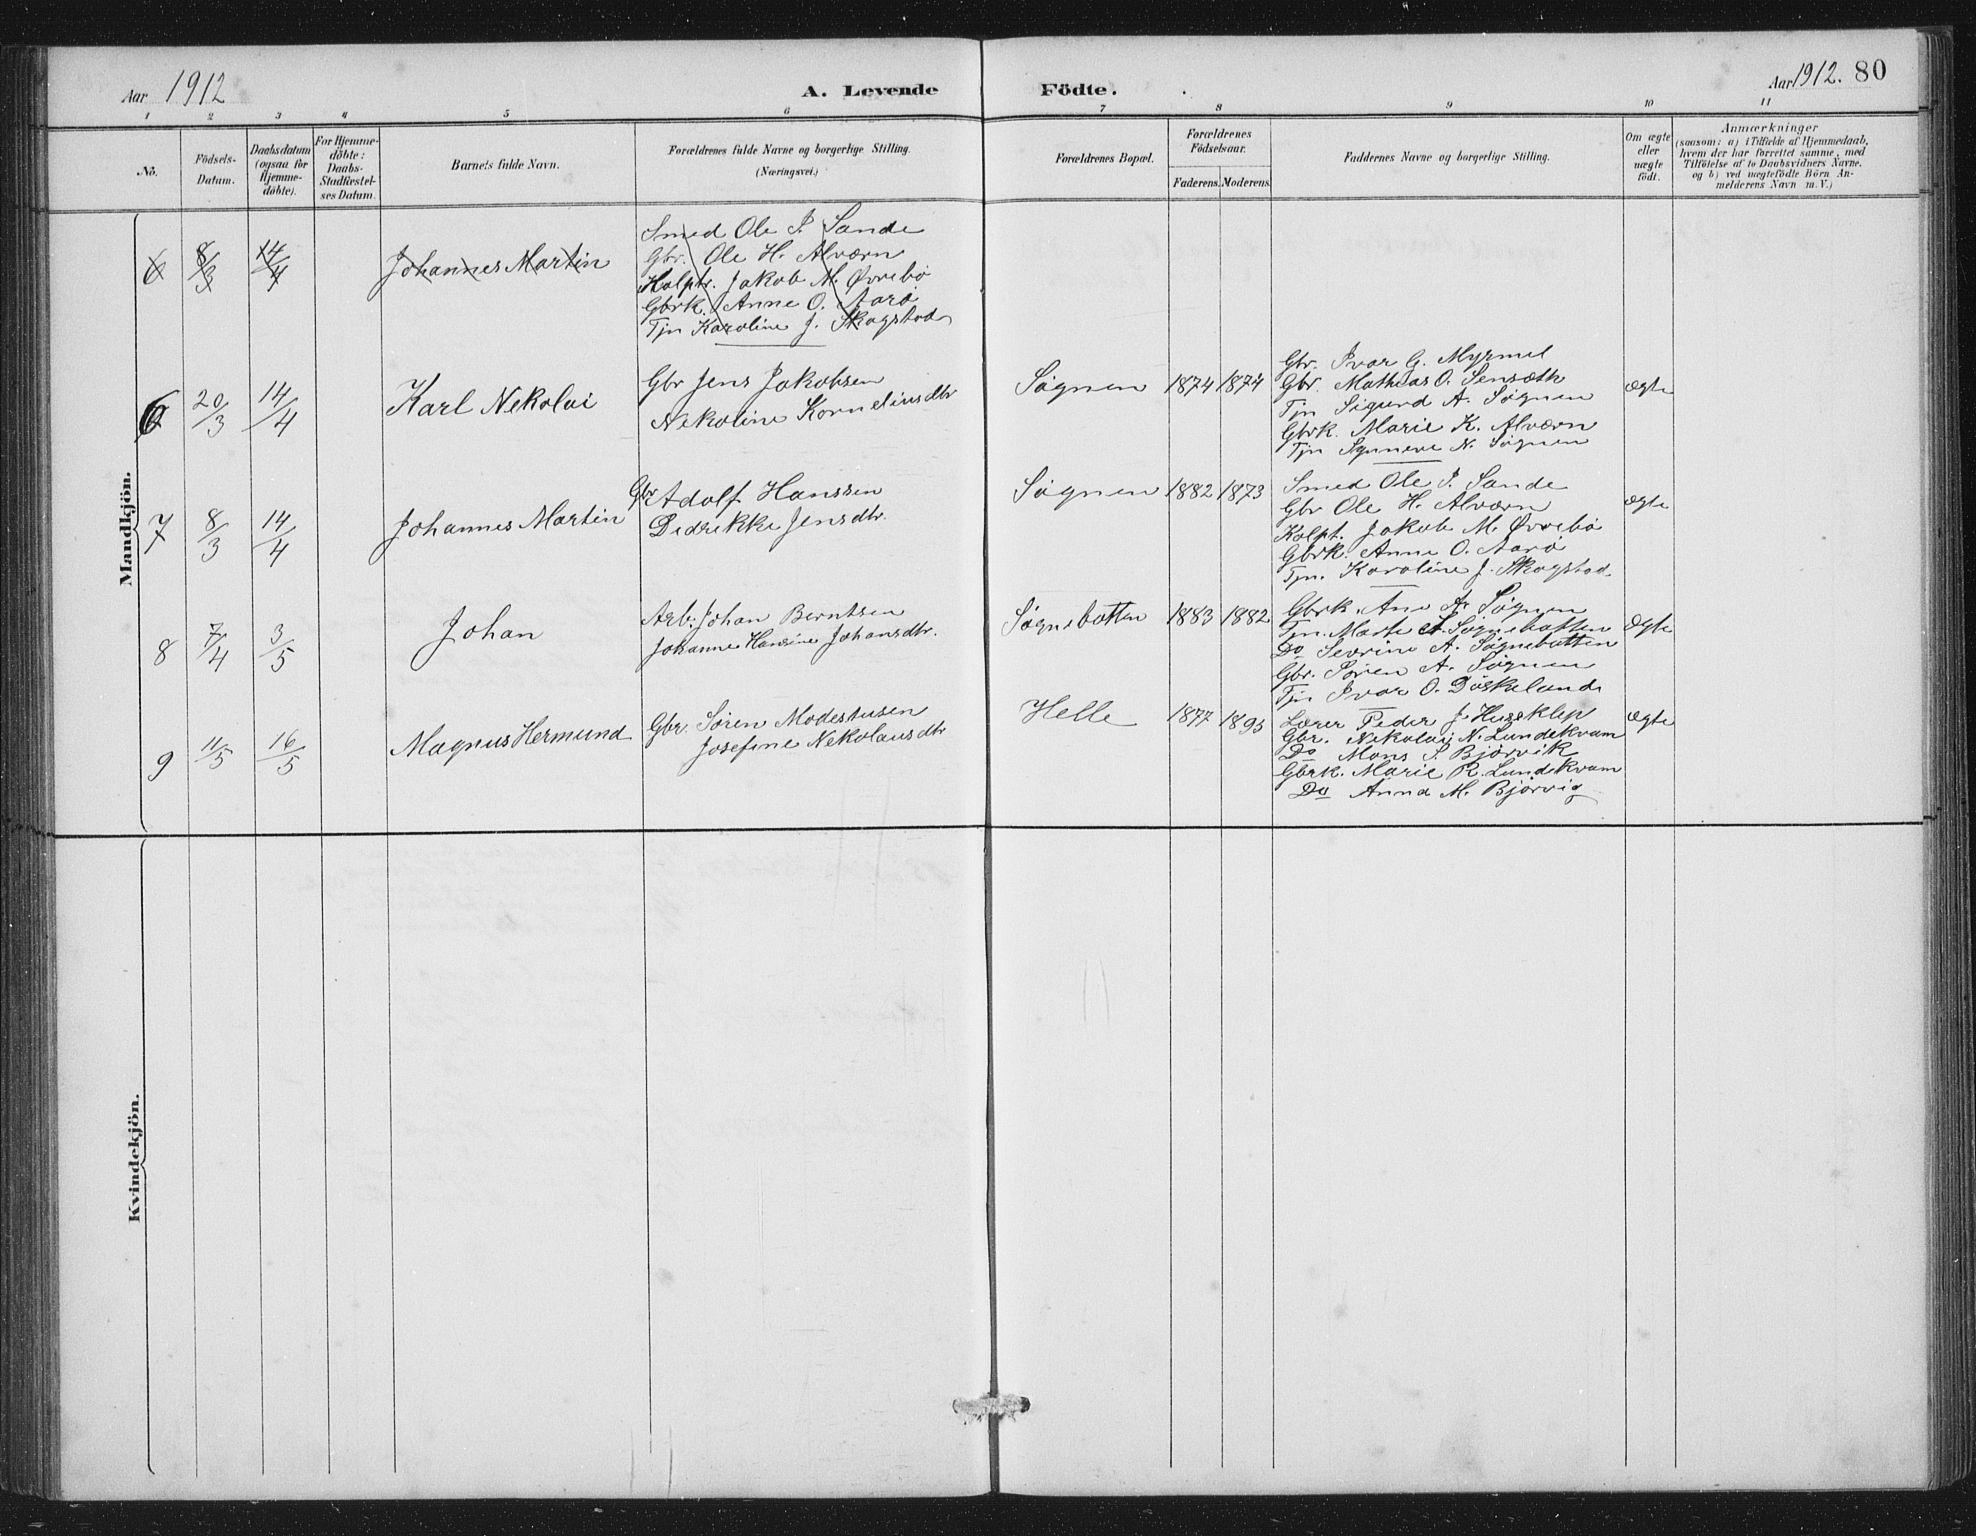 Aar 1912
A. Levende
Födte.
Aar 1912. 80
1 2 3 4 5 6 7 8 9 10 11
No.
Födsels-
Datum.
Daabsdatum
(ogsaa for
Hjemme-
döbte).
For Hjemme-
döbte:
Daabs-
Stadfæstel-
ses Datum.
Barnets fulde Navn.
Forældrenes fulde Navne og borgerlige Stilling.
(Næringsvei.)
Forældrenes Bopæl.
Forældrenes
Födselsaar.
Faderens. Moderens.
Faddernes Navne og borgerlige Stilling.
Om ægte
eller
uægte
födt.
Anmærkninger
(saasom: a) i Tilfælde af Hjemmedaab,
hvem der har forrettet samme, med
Tilföielse af to Daabsvidners Navne.
og b) ved uægtefödte Börn An-
melderens Navn m. V.)
Mandkjön.
6 8/3 14/4 Johannes Martin
Smed Ole P. Sande
Gbr. Ole H. Alværn
Kolptr. Jakob M. Øvrebø
Gbrk. Anne O. Aarø
Tjn Karoline J. Skogstad
6 20/3 14/4 Karl Nekolai
Gbr Jens Jakobsen
Nekoline Korneliusdtr
Søgnen 1874 1874
Gbr. Ivar G. Myrmel
Gbr. Mathias O. Sensæth
Tjn Sigurd A. Søgnen
Gbrk. Marie K. Alværn
Tjn Synneve N. Søgnen
ægte
7 8/3 14/4 Johannes Martin
Gbr. Adolf Hanssen
Didrikke Jensdtr.
Søgnen 1882 1873
Smed Ole P. Sande
Gbr Ole H. Alværn
Kolpt. Jakob M. Øvrebø
Gbrk. Anne O. Aarø
Tjn. Karoline J. Skogstad
ægte
8 7/4 3/5 Johan
Arb: Johan Berntsen
Johanne Hansine Johansdtr.
Søgnebotten 1883 1882
Gbrk. Ane A. Søgnen
Tjn. Marte A. Søgnebotten
Do Severine A. Søgnebotten
Gbr. Søren A. Søgnen
Tjn Ivar O. Døskeland
Ægte
9 11/5 16/5 Magnus Hermund
Gbr. Søren Modestusen
Josefine Nekolausdtr
Helle 1877 1893
Lærer Peder J. Huseklep
Gbr. Nikolai N. Lundekvam
Do Mons S. Bjørvik
Gbrk. Marie R. Lundekvam
Do Anna M. Bjørvig
Ægte
Kvindekjön.